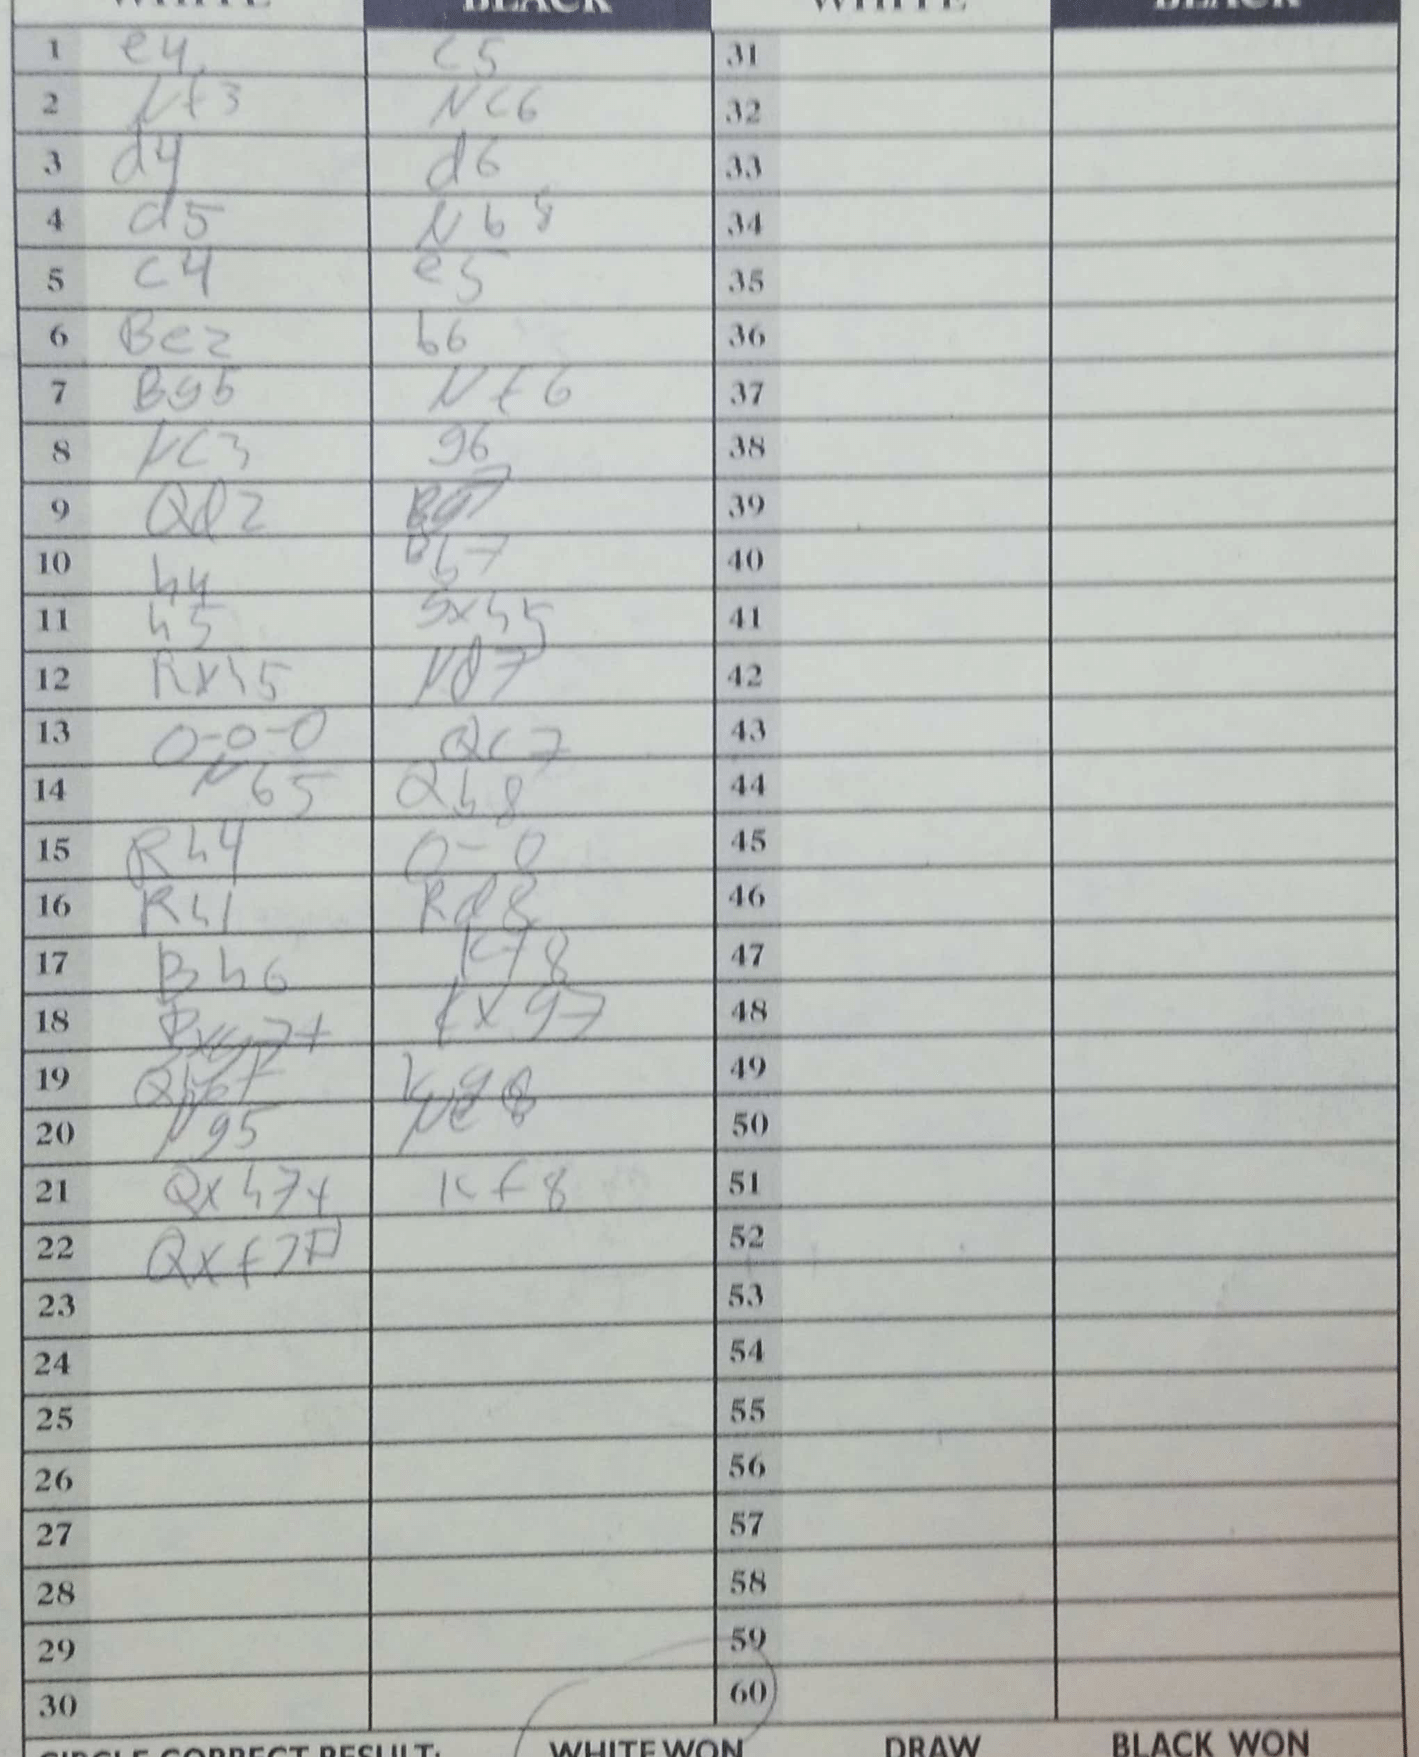 WHITE BLACK WHITE BLACK
1 e4 c5 31
2 Nf3 Nc6 32
3 d4 d6 33
4 d5 Nb8 34
5 c4 e5 35
6 Be2 b6 36
7 Bg5 Nf6 37
8 Nc3 g6 38
9 Qd2 Bg7 39
10 h4 Bb7 40
11 h5 gxh5 41
12 Rxh5 Nd7 42
13 0-0-0 Qc7 43
14 Nb5 Qb8 44
15 Rh4 0-0 45
16 Rh1 Rd8 46
17 Bh6 Kf8 47
18 Bxg7+ Kxg7 48
19 Qh6+ Kg8 49
20 Ng5 Ne8 50
21 Qxh7+ Kf8 51
22 Qxf7# 52
23 53
24 54
25 55
26 56
27 57
28 58
29 59
30 60
CIRCLE CORRECT RESULT: WHITE WON DRAW BLACK WON